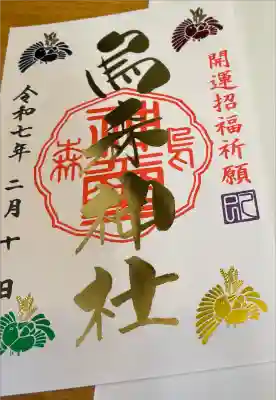 開運招福祈願
烏森神社
烏
森
令和七年二月十日